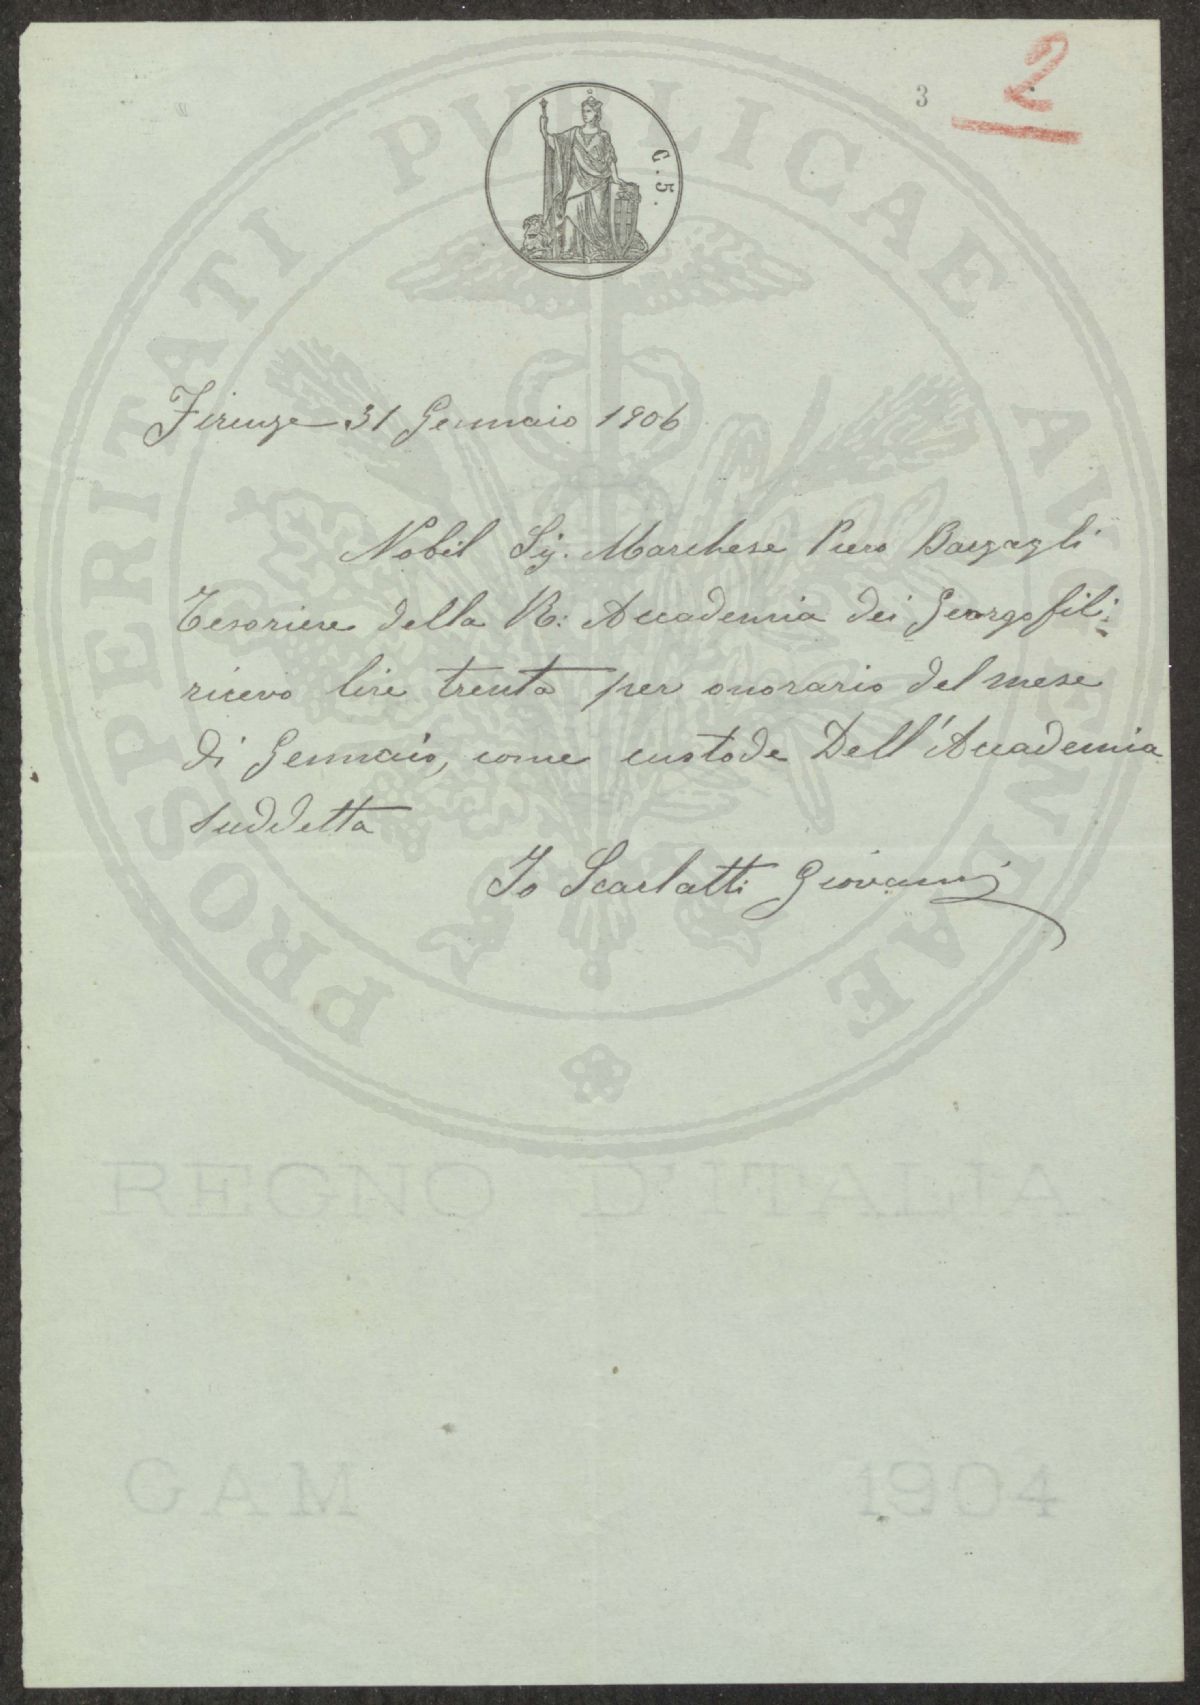 3
2
C. 5.
Firenze 31 Gennaio 1906
Nobil Sig. Marchese Piero Bargagli
Tesoriere della R: Accademia dei Georgofili
ricevo lire trenta per onorario del mese
di Gennaio, come custode Dell'Accademia
suddetta
Io Scarlatti Giovanni
PROSPERITATI PUBLICAE AUGENDAE
REGNO D'ITALIA
GAM 1904